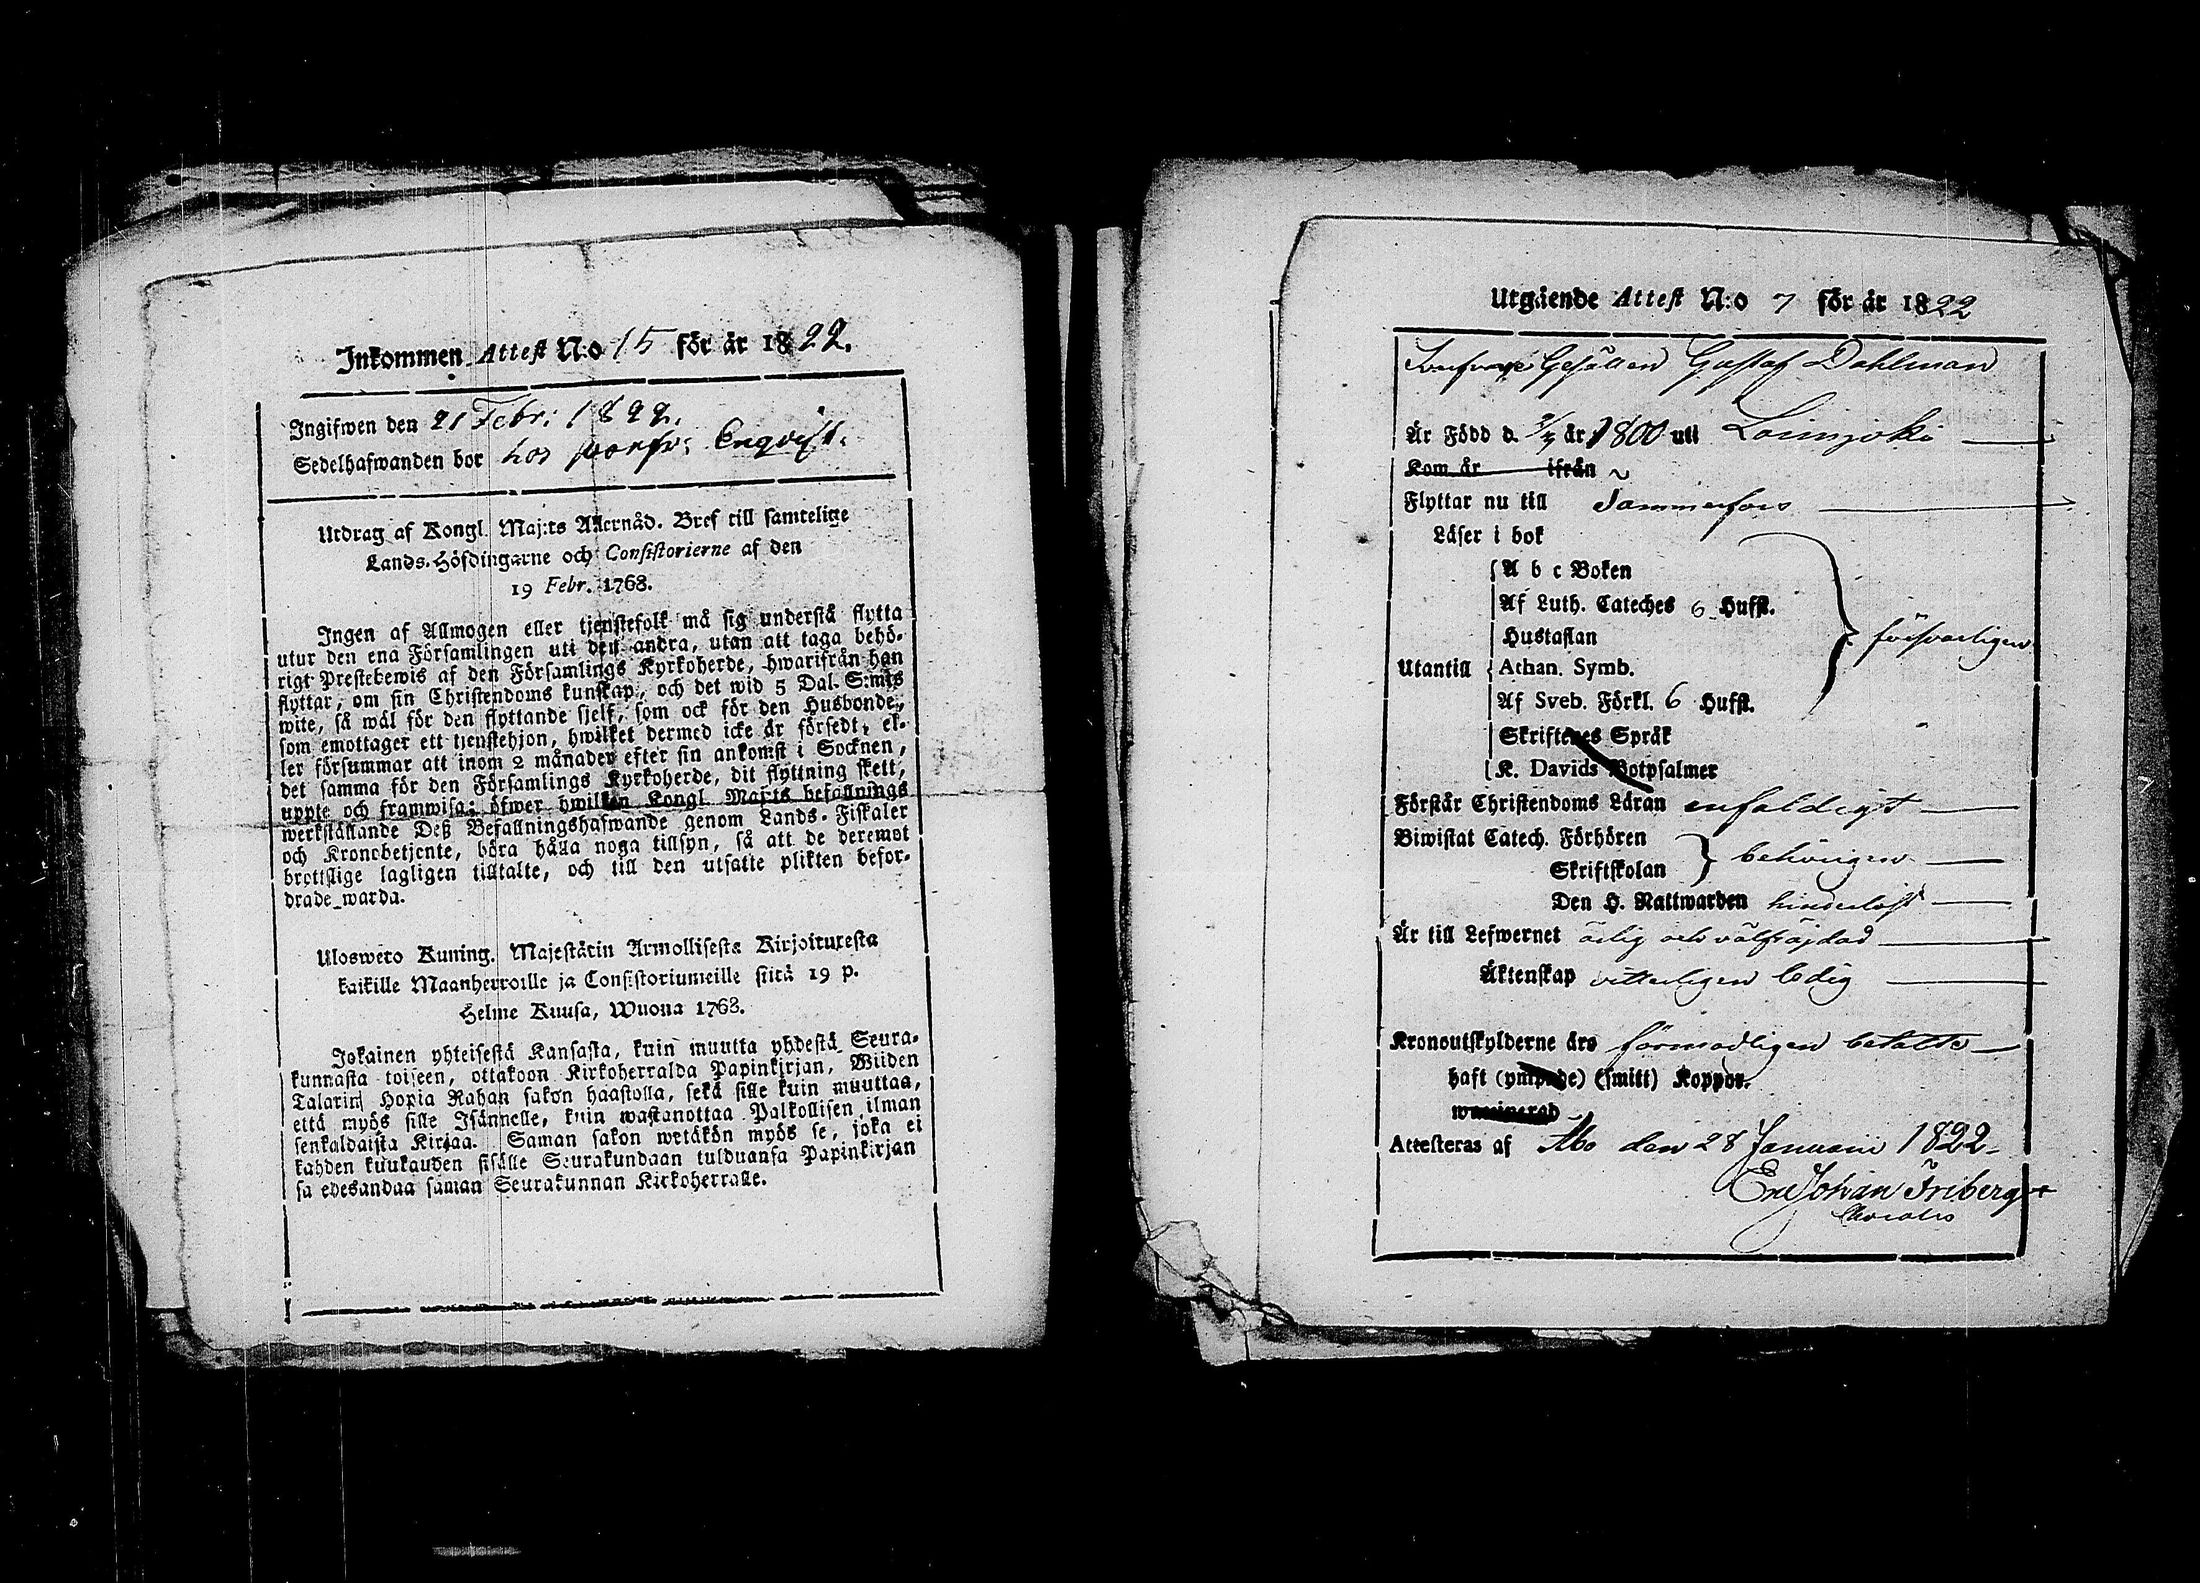 Inkommen Attest N:o 15 för år 1822.
Ingifwen den 21 Febr: 1822.
Sedelhafwanden bor hos Enqvist.
Utdrag af Kongl. Maj:ts Allernåd. Bref till samtelige
Lands-Höfdingarne och Consistorierne af den
19 Febr. 1768.
Ingen af Allmogen eller tjenstefolk må sig understå flytta
utur den ena Församlingen uti den andra, utan att taga behö-
rigt Prestebewis af den Församlings Kyrkoherde, hwarifrån han
flyttar, om sin Christendoms kunskap, och det wid 5 Dal. S:mts
wite, så wäl för den flyttande sjelf, som ock för den Husbonde,
som emottager ett tjenstehjon, hwilket dermed icke är försedt, el-
ler försummar att inom 2 månader efter sin ankomst i Socknen,
det samma för den Församlings Kyrkoherde, dit flyttning skett,
uppte och framwisa; öfwer hwilken Kongl. Maj:ts befallnings
werkställande Deß Befallningshafwande genom Lands-Fiskaler
och Kronobetjente, böra hålla noga tillsyn, så att de deremot
brottslige lagligen tilltalte, och till den utsatte plikten befor-
drade warda.
Ulosweto Kuning. Majestätin Armollisesta Kirjoituxesta
kaikille Maanherroille ja Consistoriumeille siitä 19 p.
Helme Kuusa, Wuona 1768.
Jokainen yhteisestä Kansasta, kuin muutta yhdestä Seura-
kunnasta toiseen, ottakoon Kirkoherralda Papinkirjan, Wiiden
Talarin Hopia Rahan sakon haastolla, sekä sille kuin muuttaa,
että myös sille Isännelle, kuin wastanottaa Palkollisen ilman
senkaldaista Kirjaa. Saman sakon wetäkön myös se, joka ei
kahden kuukauden sisälle Seurakundaan tulduansa Papinkirjan
sa edesandaa saman Seurakunnan Kirkoherralle.
Utgående Attest N:o 7 för år 1822
Gesällen Gustaf Dahlman
Är Född d. 3/7 år 1800 uti Loimjoki
Kom år ifrån
Flyttar nu till Tammerfors
Läser i bok
A b c Boken
Af Luth. Cateches 6 Hufst.
Hustaflan
försvarligen
Utantill Athan. Symb.
Af Sveb. Förkl. 6 Hufst.
Skriftenes Språk
K. Davids Botpsalmer
Förstår Christendoms Läran enfaldigt
Biwistat Catech. Förhören
behörigen
Skriftskolan
Den H. Nattwarden hinderlöst
Är till Lefwernet ärlig och välfräjdad
Äktenskap vitterligen ledig
Kronoutskylderne äro förmodligen betalte
haft (ympade) (smitt) Koppor.
waccinerad
Attesteras af Åbo den 28 Januarii 1822.
Er. Johan Friberg